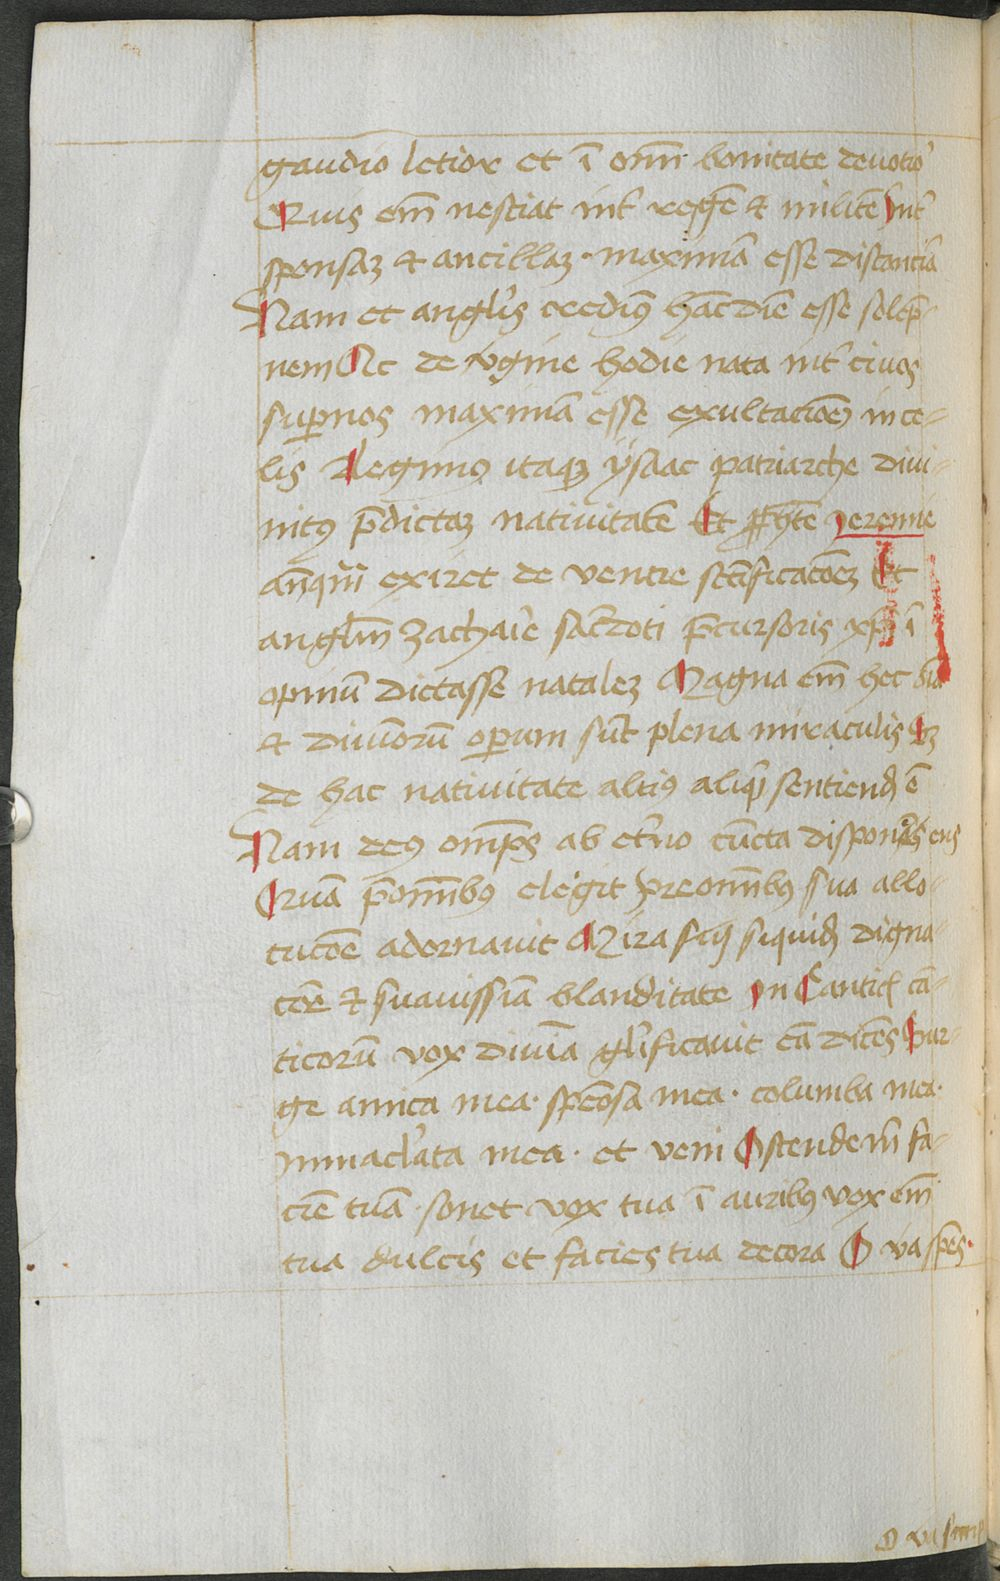 gaudio letior et ī om̄i bonitate deuotioꝰ
Quis em̄ nesciat int̉ regē & militē Int̉
sponsaꝫ & ancillaꝫ · maximā esse distanciā
Nam et angl̉is credimꝰ hāc diē esse solēp-
nem Ac de v̉gine hodie nata int̉ ciues
suꝑnos maximā esse exultacioēꝫ in ce-
lis Legimꝰ itaqꝫ ysaac patriarche diui-
nitꝰ p̄dictaꝫ natiuitatē Et ꝓph̄ete Jeremie
anq̄ꝫ exiret de ventre sc̄ificacōeꝫ Et
angl̉m zacharie sac̉doti p̄cursoris xp̄i ī
opinū dictasse nataleꝫ Magna em̄ hec oīa
& diuīorū oꝑum sūt plena miraculis Sꝫ
de hac natiuitate altiꝰ aliqͥd sentiend̄ ē
Nam deꝰ omp̄s ab et̉no cūcta disponēs eus
Quā p̄ om̄ibꝰ elegit pre om̄ibꝰ sua allo-
cucōe adornauit Mira siqͥ siquid̄ digna-
cōe & suauissīa blanditate In Cantic̄ cā-
ticorū vox diuīa gl̉ificauit eā dicēs Sur-
ge amica mea · sp̄cōsa mea · columba mea ·
immacl̉ata mea · et veni Ostende m̄ fa-
ciē tuā · sonet vox tua ī auribꝰ vox em̄
tua dulcis et facies tua decora O va sp̄es ·